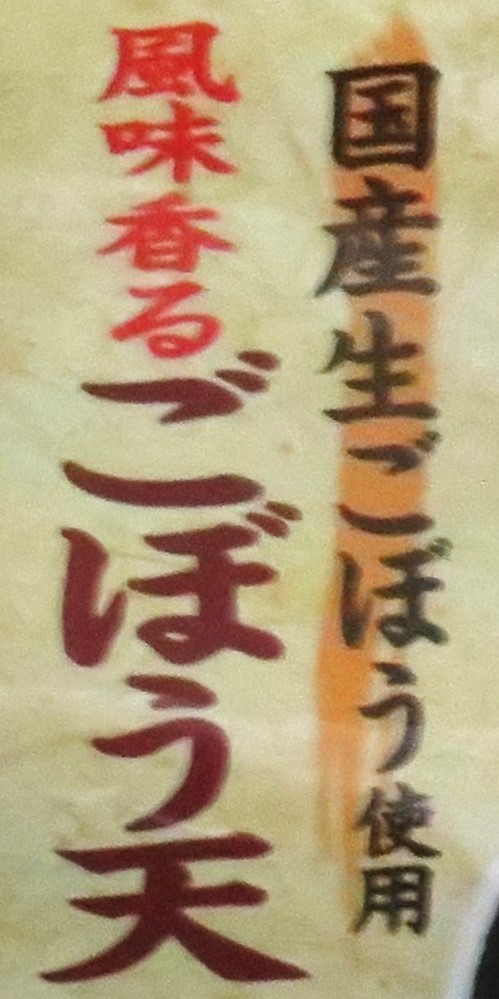 国産生ごぼう使用
風味香るごぼう天